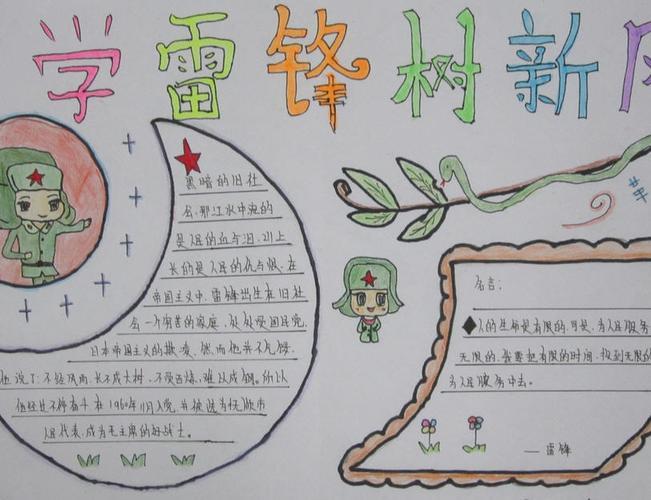 学雷锋树新风
黑暗的旧社
会，那江水中流的
是人民的血与泪，山上
长的是人民的仇与恨，在
帝国主义中，雷锋出生在旧社
会一个穷苦的家庭，处处受国民党，
日本帝国主义的欺凌，然而他并不气馁，
他说了：不经风雨，长不成大树，不受百炼，难以成钢。所以
他经过不停奋斗在1960年11月入党，并被选为抚顺市
人民代表，成为毛主席的好战士。
名言：
人的生命是有限的，可是，为人民服务
无限的，我要把有限的时间，投到无限的
为人民服务中去。
——雷锋